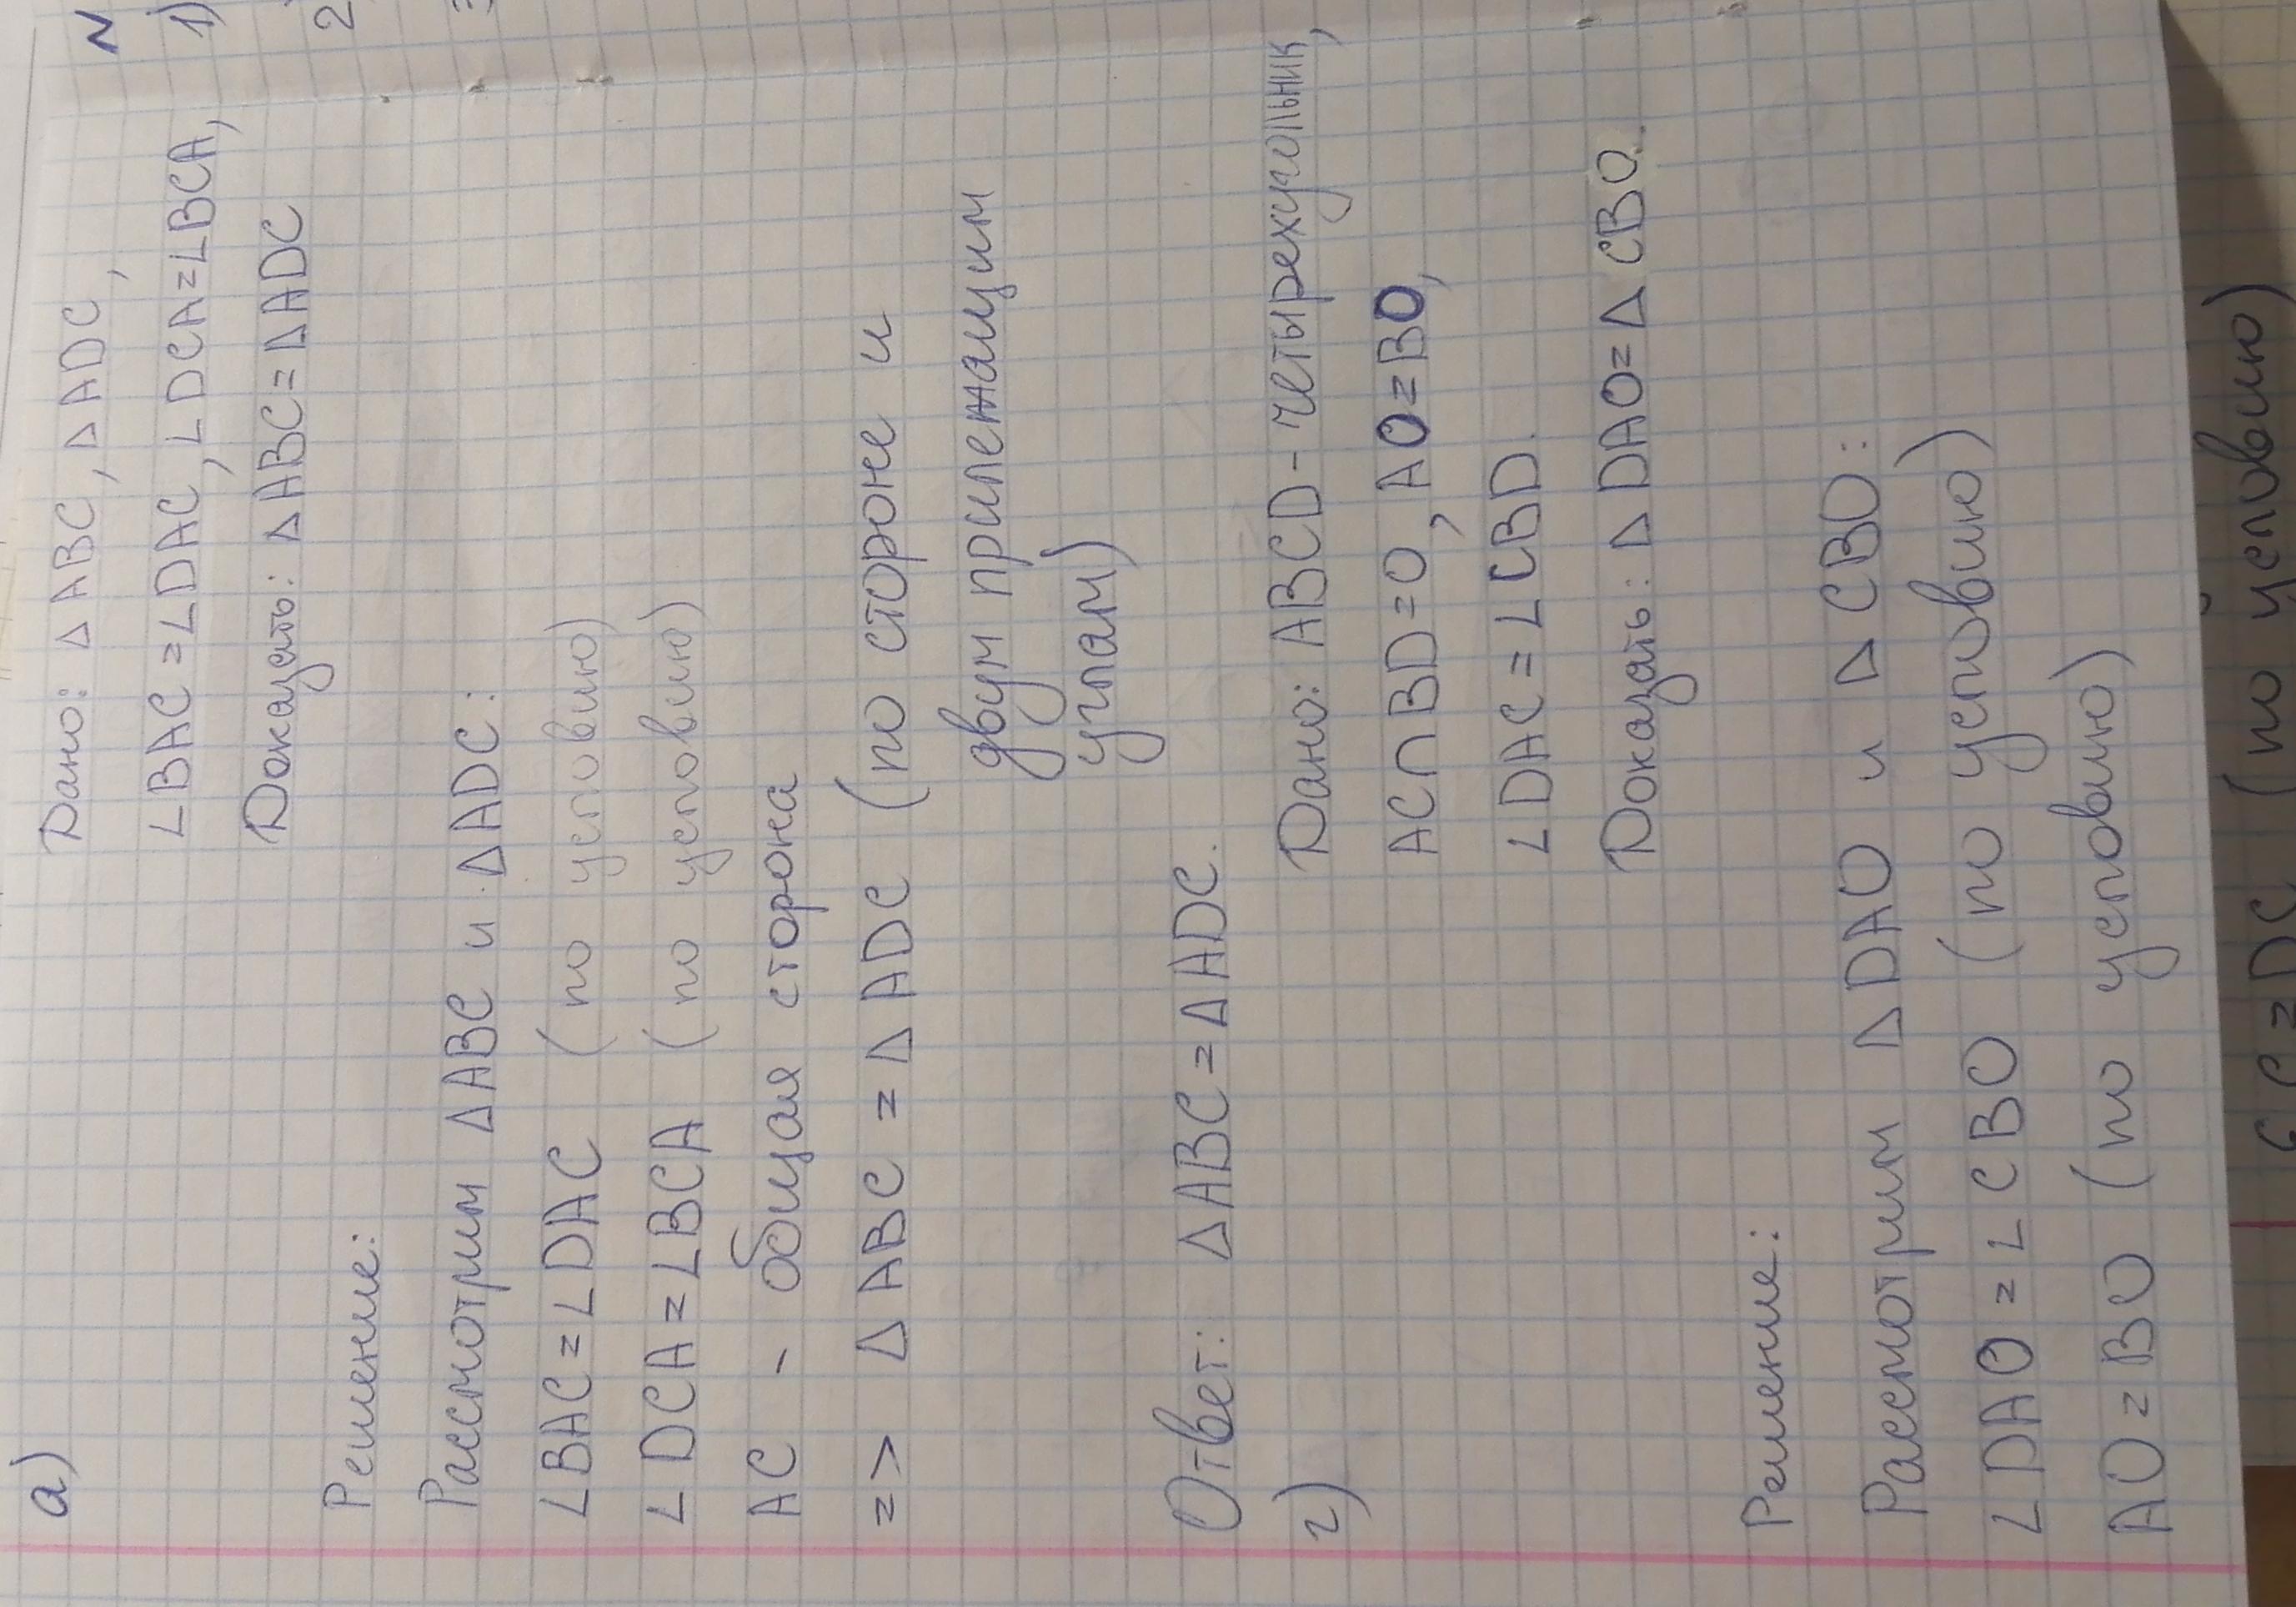 а)
Дано: ΔABC, ΔADC,
∠BAC=∠DAC, ∠DCA=∠BCA,
Доказать: ΔABC=ΔADC
Решение:
Рассмотрим ΔABC и ΔADC:
∠BAC=∠DAC (по условию)
∠DCA=∠BCA (по условию)
AC - общая сторона
=> ΔABC = ΔADC (по стороне и
двум прилежащим
углам)
Ответ: ΔABC=ΔADC.
г)
Дано: ABCD - четырехугольник,
AC∩BD=O, AO=BO,
∠DAC=∠CBD.
Доказать: ΔDAO=ΔCBO.
Решение:
Рассмотрим ΔDAO и ΔCBO:
∠DAO=∠CBO (по условию)
AO=BO (по условию)
(по условию)
N
1)
2